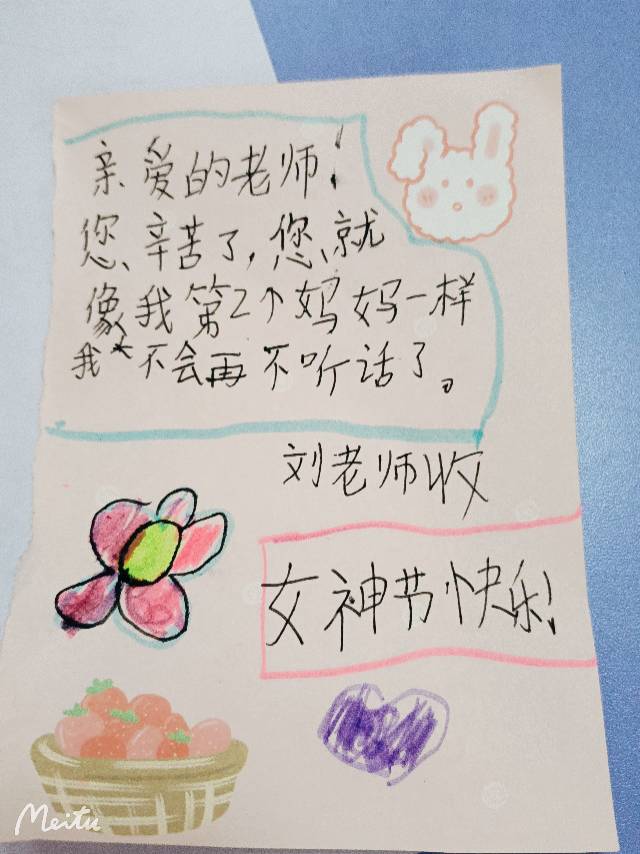 亲爱的老师！
您、辛苦了，您、就
像我第2个妈妈一样
我不会再不听话了。
刘老师收
女神节快乐！
Meitu